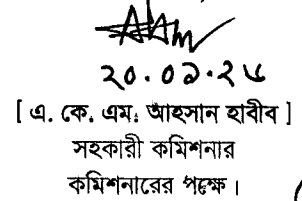 ২০.০১.২৬
[ এ. কে. এম. আহসান হাবীব ]
সহকারী কমিশনার
কমিশনারের পক্ষে ।